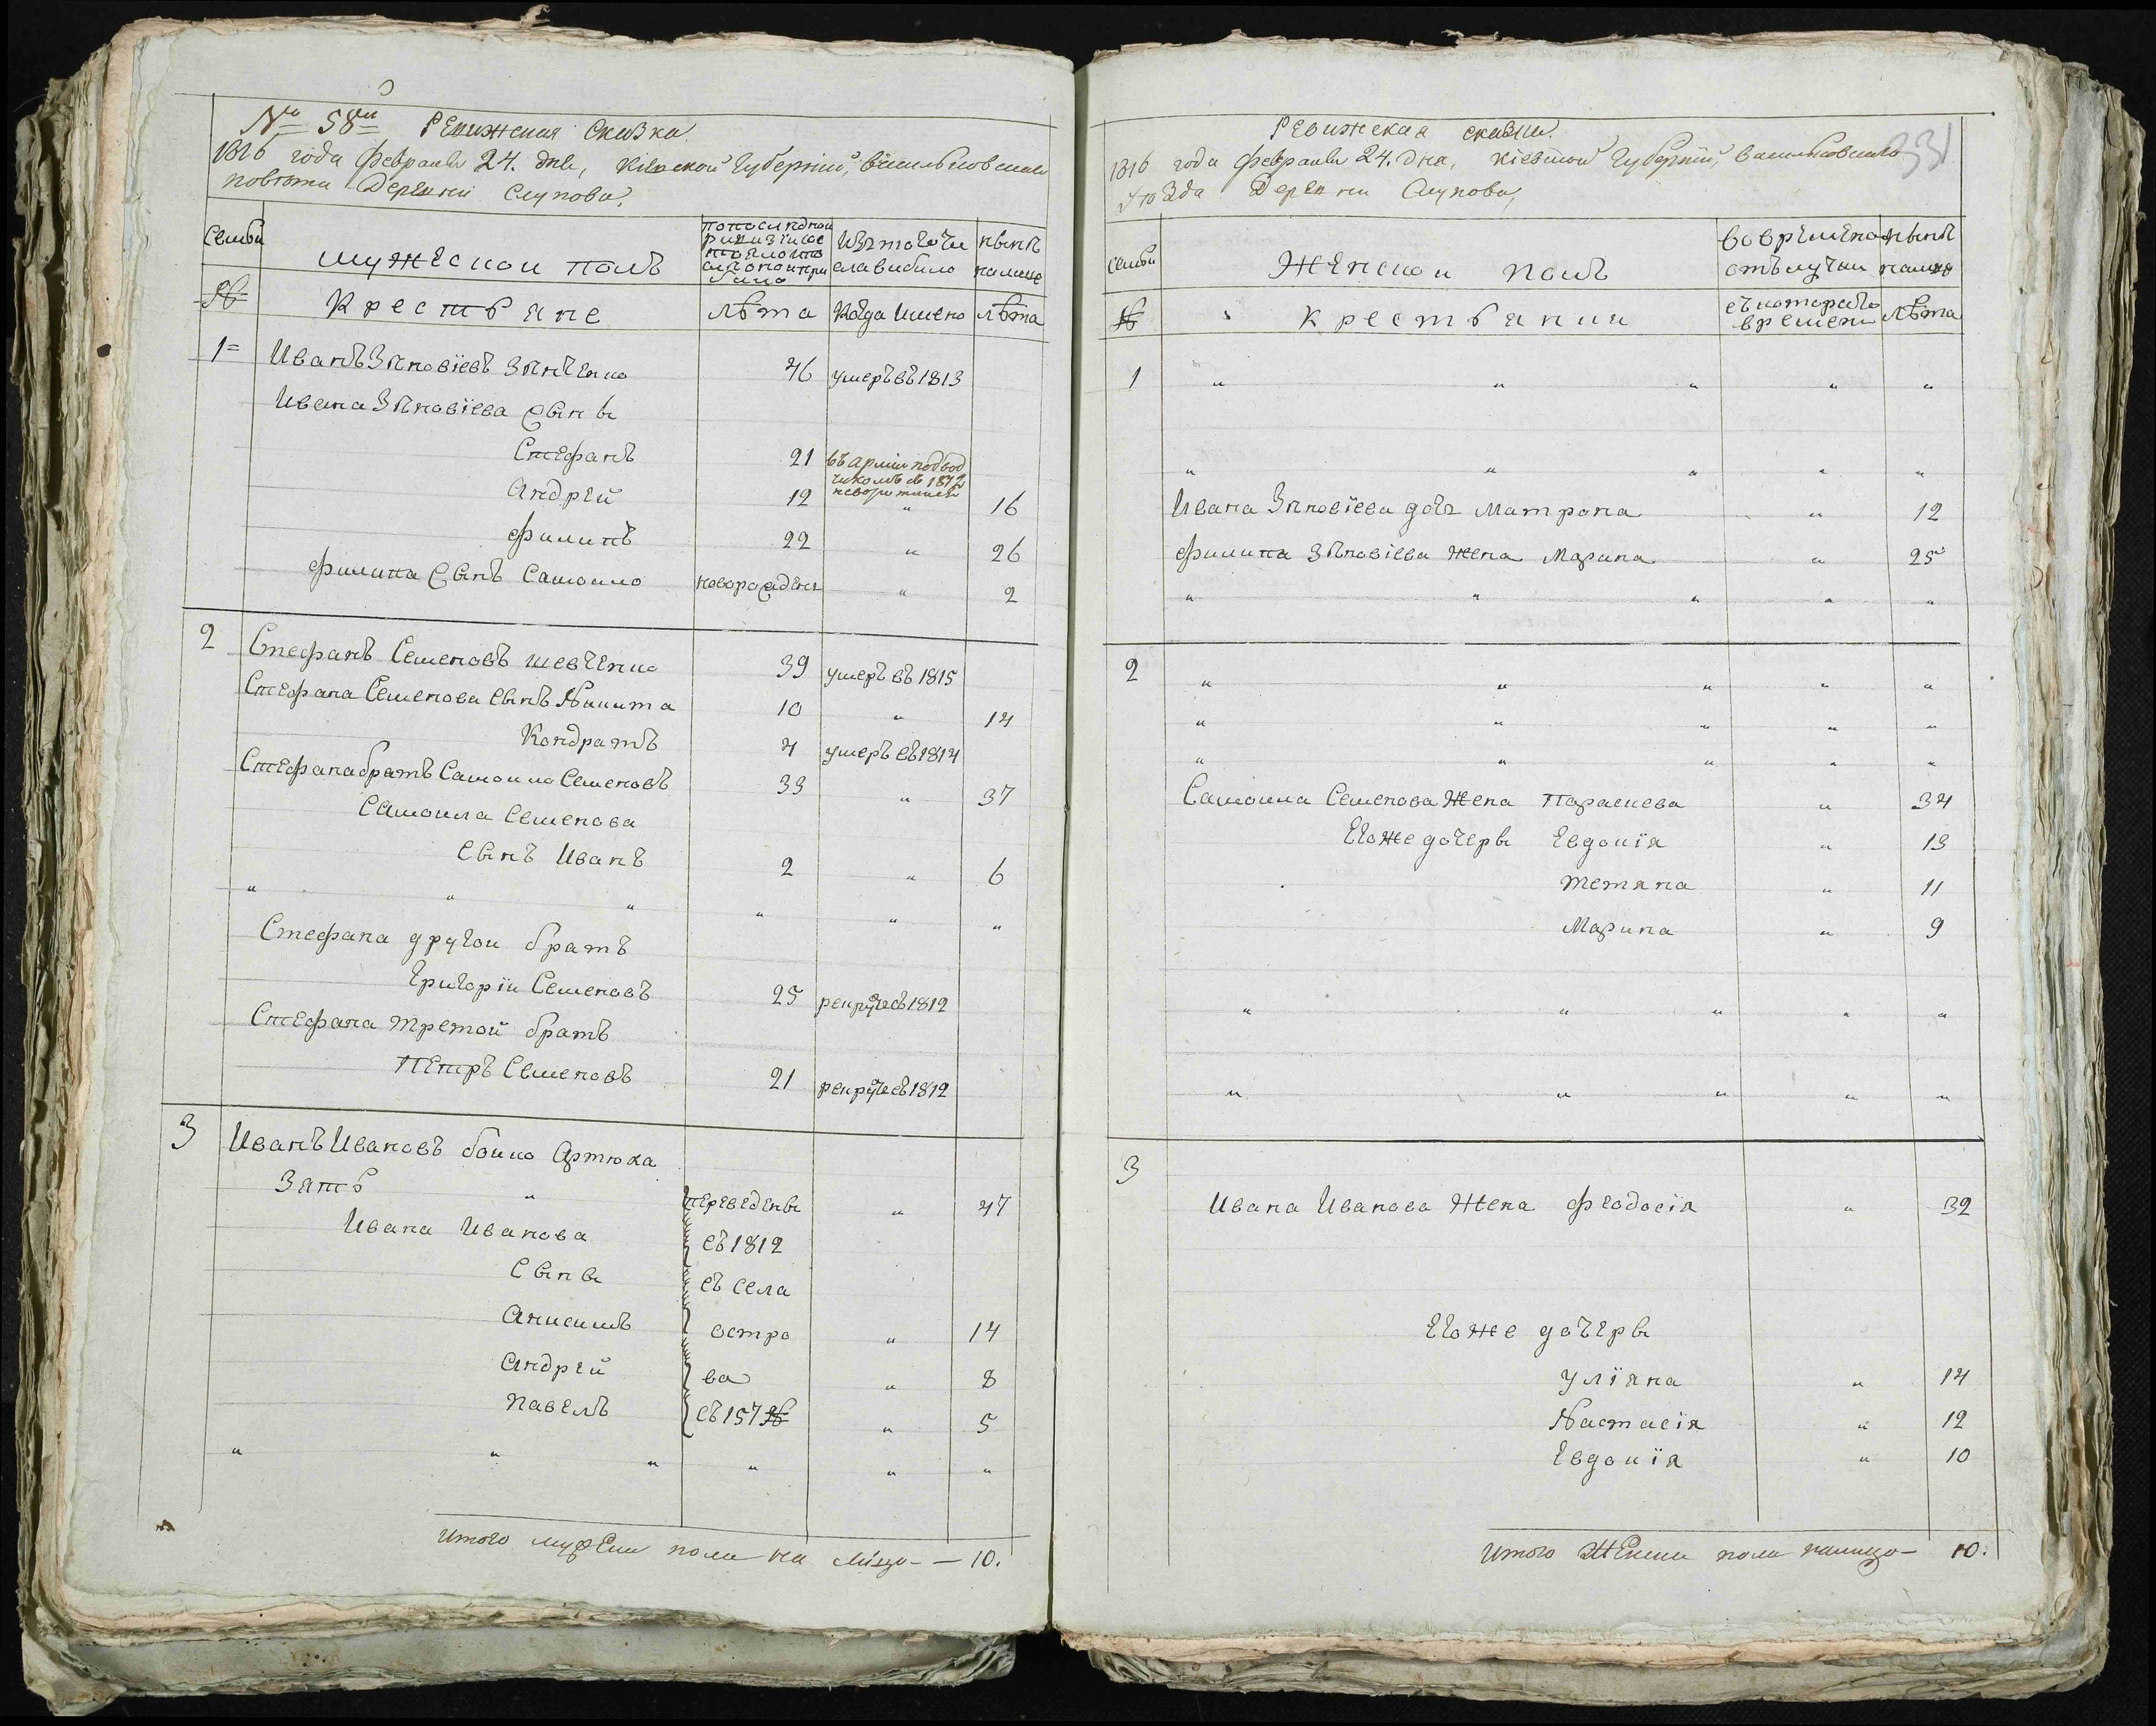 № 58й Ревижская Сказка
1816 года Февраля 24. дня, Кіевской Губерніи, Васильковскаго
повѣта Деревни Слупова,
Семьи
мужеской полъ
попоследной ревизіи состояло и по оной при было
Изтого числа выбыло
нынѣ налицо
№
Крестьяне
лѣта
когда имено
лѣта
1 Иванъ Зѣновіевъ Зѣнченко 46 умеръ въ 1813
Ивана Зѣновіева сыны
Стефанъ 21 въ арміи подвод
чикомъ въ 1812
Андрей 12 " 16
Филипъ 22 " 26
Филипа сынъ Самоило новорожденъ " 2
2 Стефанъ Семеновъ Шевченко 39 умеръ въ 1815
Стефана Семенова сынъ Никита 10 " 14
Кондратъ 4 умеръ въ 1814
Стефана братъ Самоило Семеновъ 33 " 37
Самоила Семенова
сынъ Иванъ 2 " 6
" " " " " "
Стефана другой братъ
Григорій Семеновъ 25 рекрутъ въ 1812
Стефана третой братъ
Петръ Семеновъ 21 рекрутъ въ 1812
3 Иванъ Ивановъ бойко Артюха
Зять " переведены " 47
Ивана Иванова въ 1812
сыны съ села
Анисимъ остро " 14
Андрей ва " 8
Павелъ съ 157 № " 5
" " " " " "
Итого мужеска пола на лицо — 10.
331
Ревижская сказка
1816 года Февраля 24. дня, Кіевской Губерніи, Васильковскаго
Уѣзда Деревни Слупова,
Семьи
Женской полъ
во времено отълучки
нынѣ налицо
№
Крестьянки
съ котораго времени
лѣта
1 " " " " "
" " " " "
Ивана Зѣновіева дочь Матрона " 12
Филипа Зѣновіева жена Марина " 25
" " " " "
2 " " " " "
" " " " "
" " " " "
Самоила Семенова жена Параскева " 34
Егоже дочеры Евдокія " 13
Тетяна " 11
Марина " 9
" " " " "
" " " " "
3
Ивана Иванова жена Феодосія " 32
Егоже дочеры
Уліяна " 14
Настасія " 12
Евдокія " 10
Итого Женска пола налицо — 10.